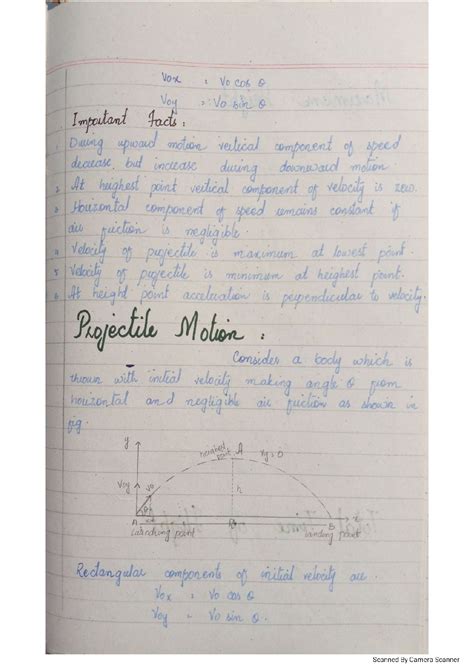 Vox = Vo cos θ
Voy = Vo sin θ
Important Facts :
1. During upward motion vertical component of speed
decrease but increase during downward motion.
2. At heighest point vertical component of velocity is zero.
3. Horizontal component of speed remains constant if
air friction is negligible.
4. Velocity of projectile is maximum at lowest point.
5. Velocity of projectile is minimum at heighest point.
6. At height point acceleration is perpendicular to velocity.
Projectile Motion :
Consider a body which is
thrown with initial velocity making angle θ from
horizontal and negligible air friction as shown in
fig.
y
heighest point
A
Vy = 0
Voy
Vo
h
θ
A
B
x
launching point
landing point
Rectangular components of initial velocity are.
Vox = Vo cos θ
Voy = Vo sin θ
Scanned By Camera Scanner